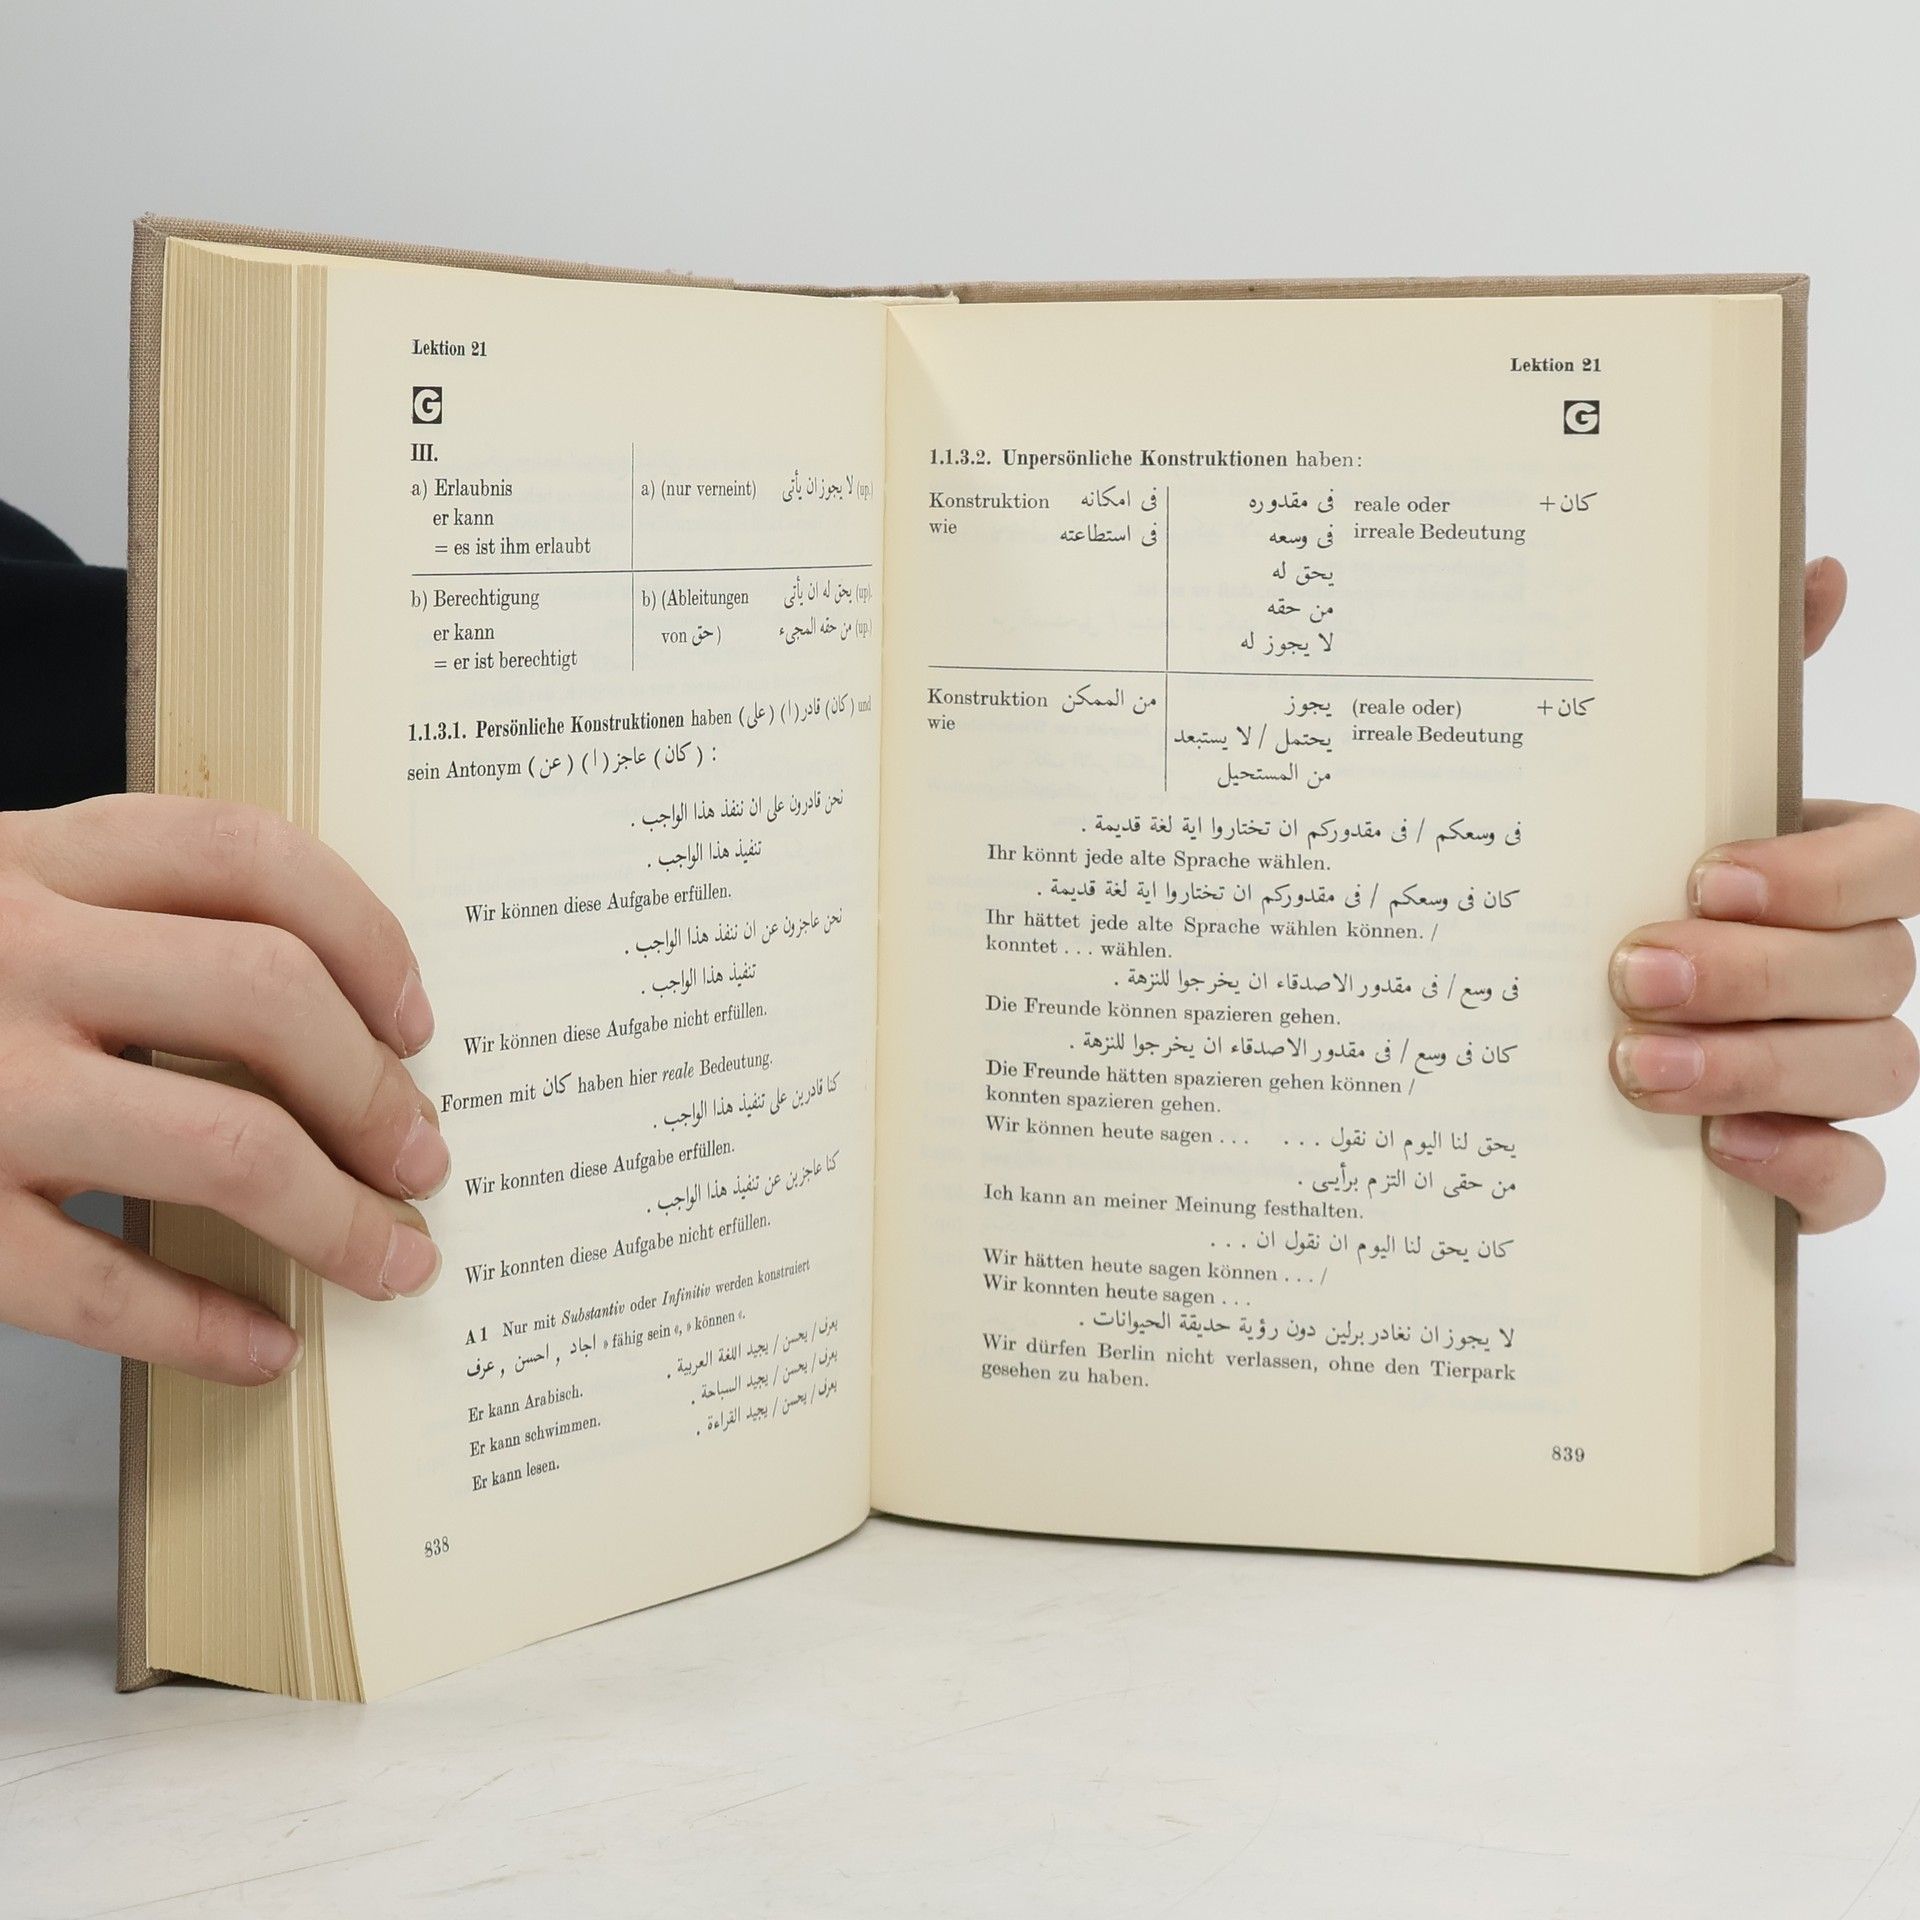 Lektion 21
G
III.
a) Erlaubnis a) (nur verneint) لا يجوز ان يأتى (up.)
er kann
= es ist ihm erlaubt
b) Berechtigung b) (Ableitungen يحق له ان يأتى (up).
er kann von حق) من حقه المجىء (up.)
= er ist berechtigt
1.1.3.1. Persönliche Konstruktionen haben (كان) قادر (ا) (على) und
sein Antonym (كان) عاجز (ا) (عن) :
نحن قادرون على ان ننفذ هذا الواجب .
تنفيذ هذا الواجب .
Wir können diese Aufgabe erfüllen.
نحن عاجزون عن ان ننفذ هذا الواجب .
تنفيذ هذا الواجب .
Wir können diese Aufgabe nicht erfüllen.
Formen mit كان haben hier reale Bedeutung.
كنا قادرين على تنفيذ هذا الواجب .
Wir konnten diese Aufgabe erfüllen.
كنا عاجزين عن تنفيذ هذا الواجب .
Wir konnten diese Aufgabe nicht erfüllen.
A 1 Nur mit Substantiv oder Infinitiv werden konstruiert
عرف , احسن , اجاد »fähig sein«, »können«.
يعرف / يحسن / يجيد اللغة العربية .
Er kann Arabisch.
يعرف / يحسن / يجيد السباحة .
Er kann schwimmen.
يعرف / يحسن / يجيد القراءة .
Er kann lesen.
838
Lektion 21
G
1.1.3.2. Unpersönliche Konstruktionen haben:
Konstruktion فى امكانه فى مقدوره reale oder كان +
wie فى استطاعته فى وسعه irreale Bedeutung
يحق له
من حقه
لا يجوز له
Konstruktion من الممكن يجوز (reale oder) كان +
wie يحتمل / لا يستبعد irreale Bedeutung
من المستحيل
فى وسعكم / فى مقدوركم ان تختاروا اية لغة قديمة .
Ihr könnt jede alte Sprache wählen.
كان فى وسعكم / فى مقدوركم ان تختاروا اية لغة قديمة .
Ihr hättet jede alte Sprache wählen können. /
konntet . . . wählen.
فى وسع / فى مقدور الاصدقاء ان يخرجوا للنزهة .
Die Freunde können spazieren gehen.
كان فى وسع / فى مقدور الاصدقاء ان يخرجوا للنزهة .
Die Freunde hätten spazieren gehen können /
konnten spazieren gehen.
Wir können heute sagen . . . يحق لنا اليوم ان نقول . . .
من حقى ان التزم برأيى .
Ich kann an meiner Meinung festhalten.
كان يحق لنا اليوم ان نقول ان . . .
Wir hätten heute sagen können . . . /
Wir konnten heute sagen . . .
لا يجوز ان نغادر برلين دون رؤية حديقة الحيوانات .
Wir dürfen Berlin nicht verlassen, ohne den Tierpark
gesehen zu haben.
839